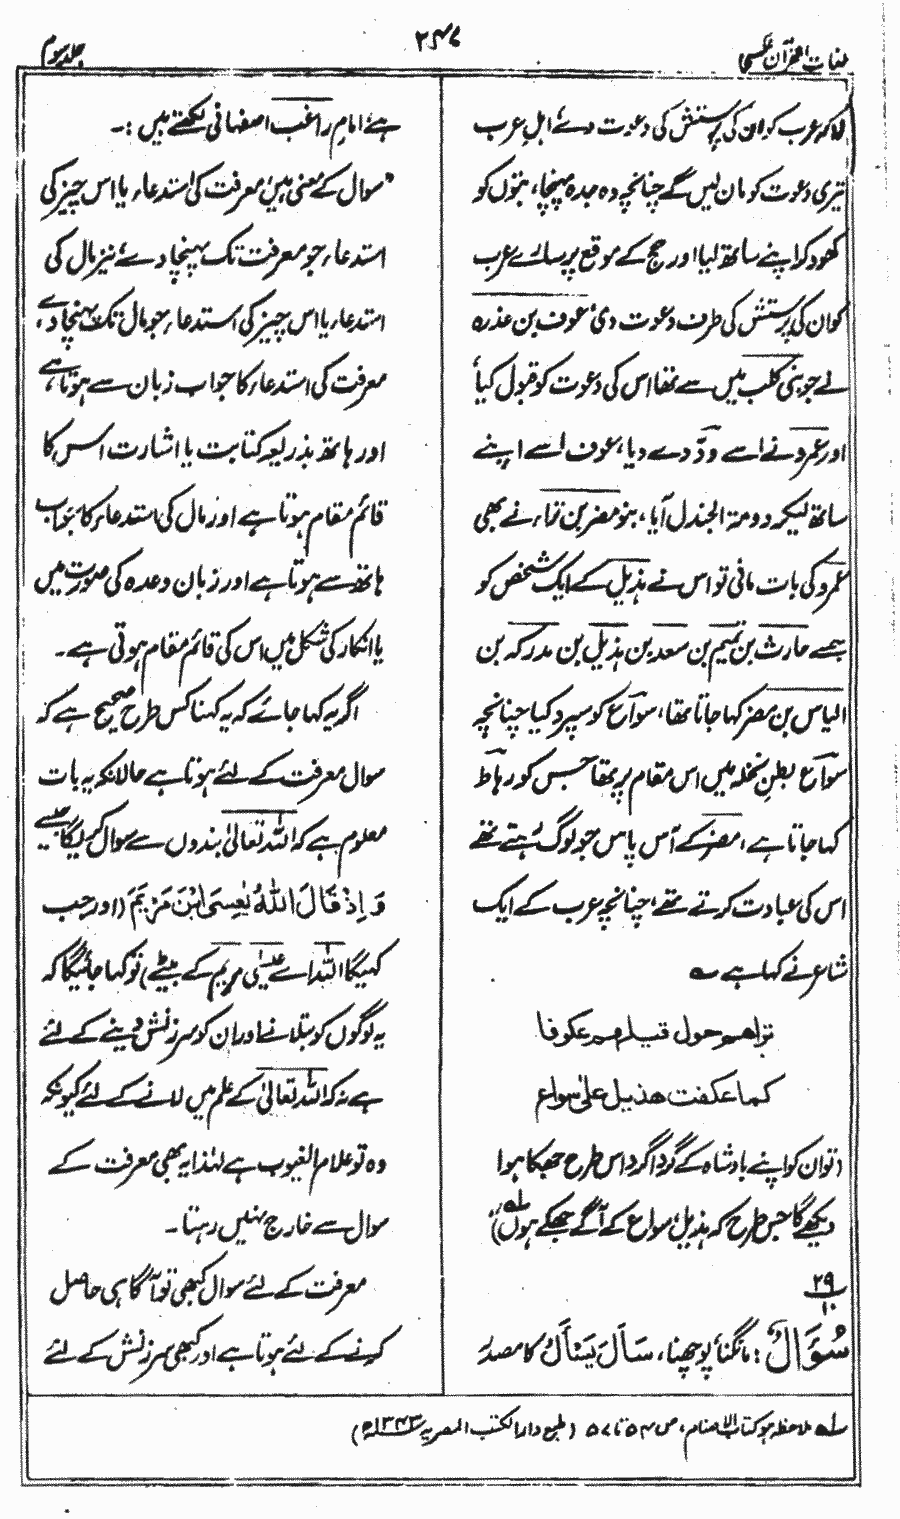 لغات القرآن عکسی
۲۴۷
جلد سوم
لا کر عرب کو ان کی پرستش کی دعوت دے، اہل عرب
تیری دعوت کو مان لیں گے چنانچہ وہ جدہ پہنچا، بتوں کو
کھود کر اپنے ساتھ لیا اور حج کے موقع پر سارے عرب
کو ان کی پرستش کی طرف دعوت دی، عوف بن عذرہ
نے جو بنی کلب میں سے تھا اس کی دعوت کو قبول کیا،
اور عمرو نے اسے ودّ دے دیا، عوف اسے اپنے
ساتھ لیکر دومۃ الجندل آیا، بنو مضر بن نزار نے بھی
عمرو کی بات مانی تو اس نے ہذیل کے ایک شخص کو
جسے حارث بن تمیم بن سعد بن ہذیل بن مدرکہ بن
الیاس بن مضر کہا جاتا تھا، سواع کو سپرد کیا چنانچہ
سواع بطن نخلہ میں اس مقام پر تھا جس کو رہاط
کہا جاتا ہے، مضر کے آس پاس جو لوگ رہتے تھے
اس کی عبادت کرتے تھے، چنانچہ عرب کے ایک
شاعر نے کہا ہے ؎
تراهم حول قيلهم عكوفا
كما عكفت هذيل على سواع
(تو ان کو اپنے بادشاہ کے گردا گرد اس طرح جھکا ہوا
دیکھے گا جس طرح کہ ہذیل، سواع کے آگے جھکے ہوں) لہ
۲۹
۱۰
سُؤَالٌ: مانگنا، پوچھنا، سَأَلَ یَسْأَلُ کا مصدر
ہے، امام راغب اصفہانی لکھتے ہیں :۔
”سوال کے معنی ہیں، معرفت کی استدعاء یا اس چیز کی
استدعاء جو معرفت تک پہنچا دے، نیز مال کی
استدعاء یا اس چیز کی استدعاء جو مال تک پہنچا دے،
معرفت کی استدعاء کا جواب زبان سے ہوتا ہے،
اور ہاتھ بذریعہ کتابت یا اشارت اس کا
قائم مقام ہوتا ہے اور مال کی استدعاء کا جواب
ہاتھ سے ہوتا ہے اور زبان وعدہ کی صورت میں
یا انکار کی شکل میں اس کی قائم مقام ہوتی ہے۔
اگر یہ کہا جائے کہ یہ کہنا کس طرح صحیح ہے کہ
سوال معرفت کے لئے ہوتا ہے حالانکہ یہ بات
معلوم ہے کہ اللہ تعالیٰ بندوں سے سوال کریگا جیسے
وَ اِذْ قَالَ اللهُ یٰعِیْسَی ابْنَ مَرْیَمَ (اور جب
کہیگا اللہ اے عیسٰی مریم کے بیٹے) تو کہا جائیگا کہ
یہ لوگوں کو بتلانے اور ان کو سرزنش دینے کے لئے
ہے نہ کہ اللہ تعالیٰ کے علم میں لانے کے لئے کیونکہ
وہ تو علام الغیوب ہے لہٰذا یہ بھی معرفت کے
سوال سے خارج نہیں رہتا۔
معرفت کے لئے سوال کبھی تو آگاہی حاصل
کرنے کے لئے ہوتا ہے اور کبھی سرزنش کے لئے
لہ ملاحظہ ہو کتاب الاصنام، ص ۵۴ تا ۵۷ (طبع دار الکتب المصریہ ۱۳۴۳ھ)